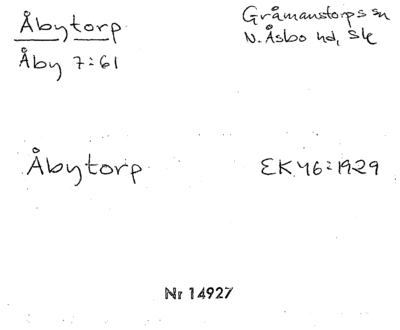 Åbytorp
Åby 7:61
Gråmanstorps sn
N. Åsbo hd, Sk
Åbytorp
EK 46:1929
Nr 14927